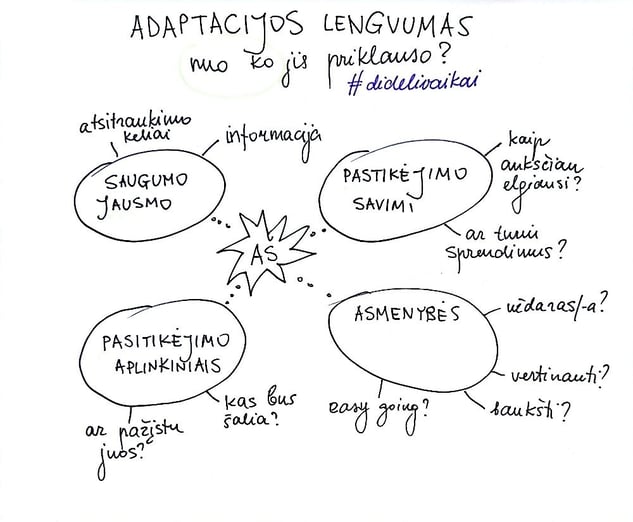 ADAPTACIJOS LENGVUMAS
nuo ko jis priklauso?
#didelivaikai
atsitraukimo
keliai
informacija
SAUGUMO
JAUSMO
PASTIKĖJIMO
SAVIMI
kaip
aukščiau
elgiausi?
ar turiu
sprendimus?
AŠ
PASITIKĖJIMO
APLINKINIAIS
ar pažįstu
juos?
kas bus
šalia?
ASMENYBĖS
uždaras/-a?
vertinanti?
baukšti?
easy going?